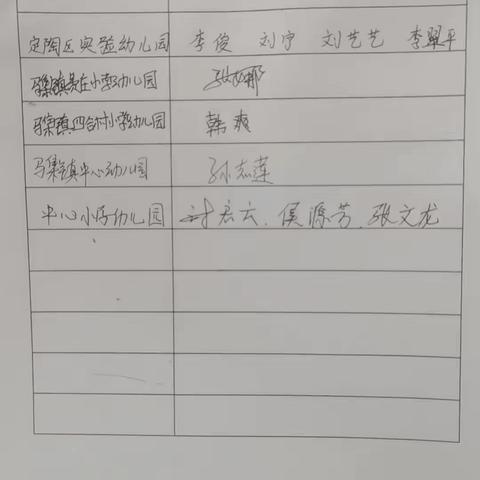 定陶区实验幼儿园 李俊 刘宁 刘艺艺 李翠平
马集镇 庄小学幼儿园 张 娜
马集镇四合村小学幼儿园 韩爽
马集镇中心幼儿园 孙志莲
中心小学幼儿园 宏云、侯源芳、张文龙